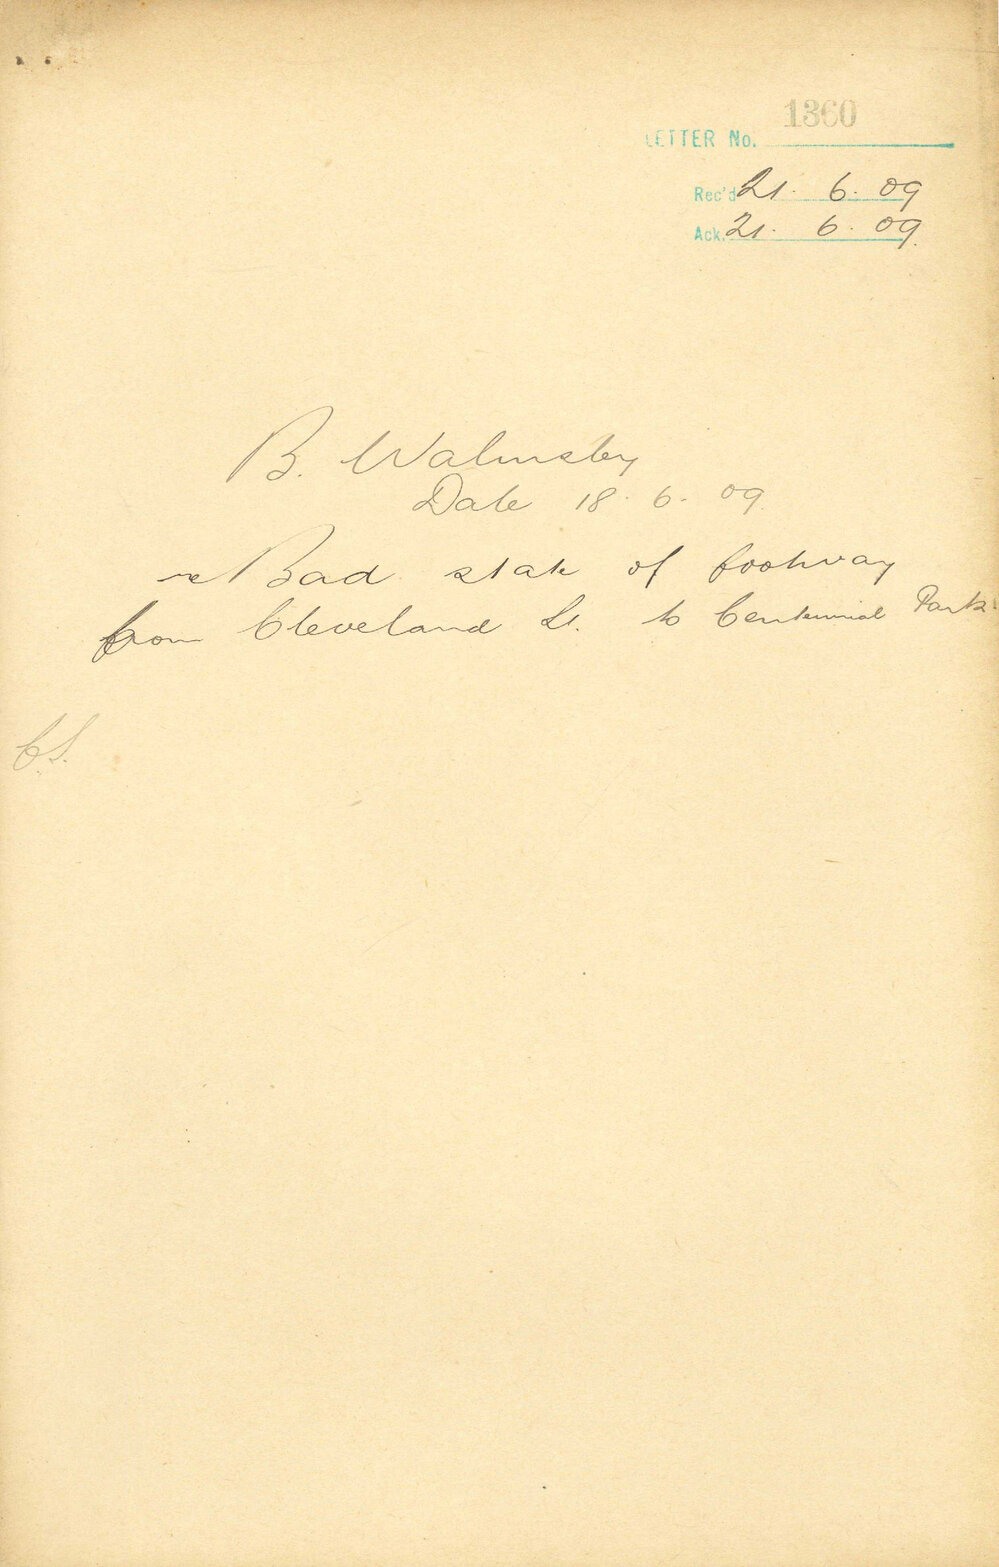 1360
LETTER No.
Rec'd 21. 6. 09
Ack. 21. 6. 09.
B. Walmsley
Date 18. 6. 09.
re Bad state of footway
from Cleveland St. to Centennial Park
C.S.